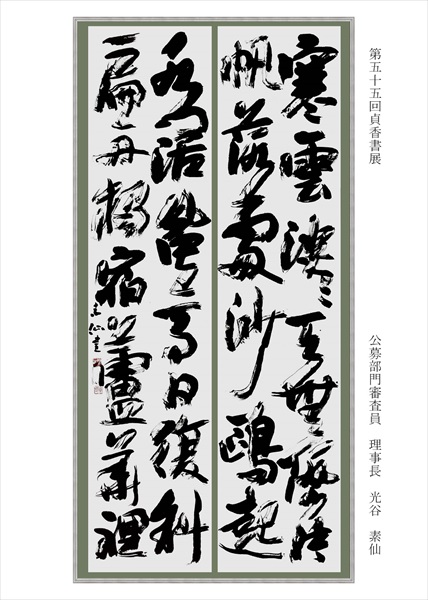 第五十五回貞香書展
公募部門審査員　理事長　光谷　素仙
寒雲淡々天無際片
帆落處沙鷗起
水濶風高日復斜
扁舟獨宿蘆華裡
素仙書